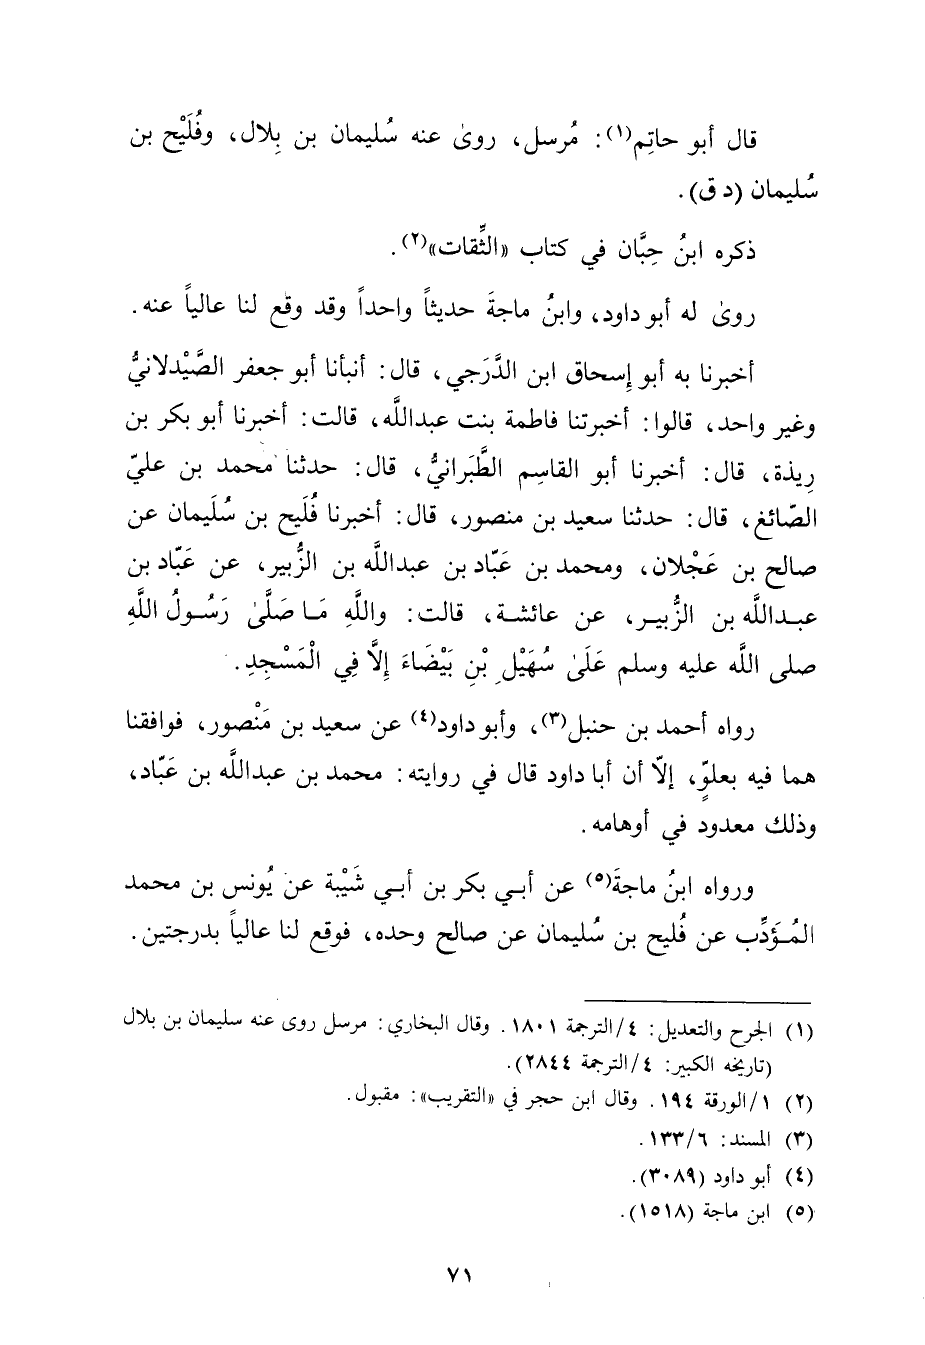 قال أبو حاتِم(١): مُرسل، روىٰ عنه سُليمان بن بِلال، وفُلَيْح بن
سُليمان (د ق).
ذكره ابنُ حِبَّان في كتاب «الثِّقات»(٢).
روىٰ له أبو داود، وابنُ ماجةَ حديثاً واحداً وقد وقع لنا عالياً عنه.
أخبرنا به أبو إسحاق ابن الدَّرَجي، قال: أنبأنا أبو جعفر الصَّيْدلانيُّ
وغير واحد، قالوا: أخبرتنا فاطمة بنت عبدالله، قالت: أخبرنا أبو بكر بن
رِيذة، قال: أخبرنا أبو القاسِم الطَّبَرانيُّ، قال: حدثنا محمد بن عليّ
الصّائغ، قال: حدثنا سعيد بن منصور، قال: أخبرنا فُلَيح بن سُلَيمان عن
صالح بن عَجْلان، ومحمد بن عَبّاد بن عبدالله بن الزُّبير، عن عَبّاد بن
عبدالله بن الزُّبير، عن عائشة، قالت: واللَّهِ مَا صَلَّىٰ رَسُولُ اللَّهِ
صلى الله عليه وسلم عَلَىٰ سُهَيْلِ بْنِ بَيْضَاءَ إِلَّا فِي الْمَسْجِدِ.
رواه أحمد بن حنبل(٣)، وأبو داود(٤) عن سعيد بن مَنْصور، فوافقنا
هما فيه بعلوٍّ، إلّا أن أبا داود قال في روايته: محمد بن عبدالله بن عَبّاد،
وذلك معدود في أوهامه.
ورواه ابنُ ماجةَ(٥) عن أبي بكر بن أبي شَيْبة عن يُونس بن محمد
المُؤَدِّب عن فُليح بن سُليمان عن صالح وحده، فوقع لنا عالياً بدرجتين.
(١) الجرح والتعديل: ٤/الترجمة ١٨٠١. وقال البخاري: مرسل روى عنه سليمان بن بلال
(تاريخه الكبير: ٤/الترجمة ٢٨٤٤).
(٢) ١/الورقة ١٩٤. وقال ابن حجر في «التقريب»: مقبول.
(٣) المسند: ١٣٣/٦.
(٤) أبو داود (٣٠٨٩).
(٥) ابن ماجة (١٥١٨).
٧١